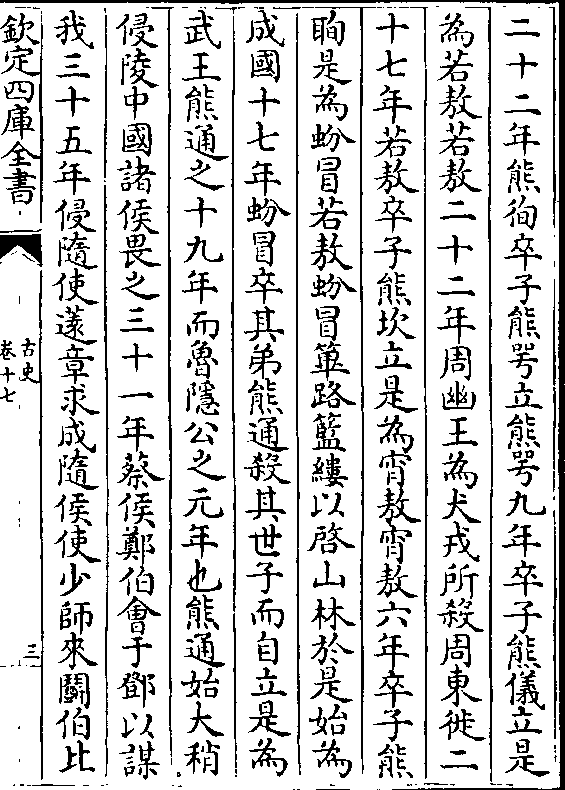 二十二年熊徇卒子熊咢立熊咢九年卒子熊儀立是
為若敖若敖二十二年周幽王為犬戎所殺周東徙二
十七年若敖卒子熊坎立是為霄敖霄敖六年卒子熊
眴是為蚡冒若敖蚡冒篳路籃縷以啓山林於是始為
成國十七年蚡冒卒其弟熊通殺其世子而自立是為
武王熊通之十九年而魯隱公之元年也熊通始大稍
侵陵中國諸侯畏之三十一年蔡侯鄭伯會于鄧以謀
我三十五年侵隨使薳章求成隨侯使少師來鬭伯比
欽定四庫全書
古史
卷十七
三